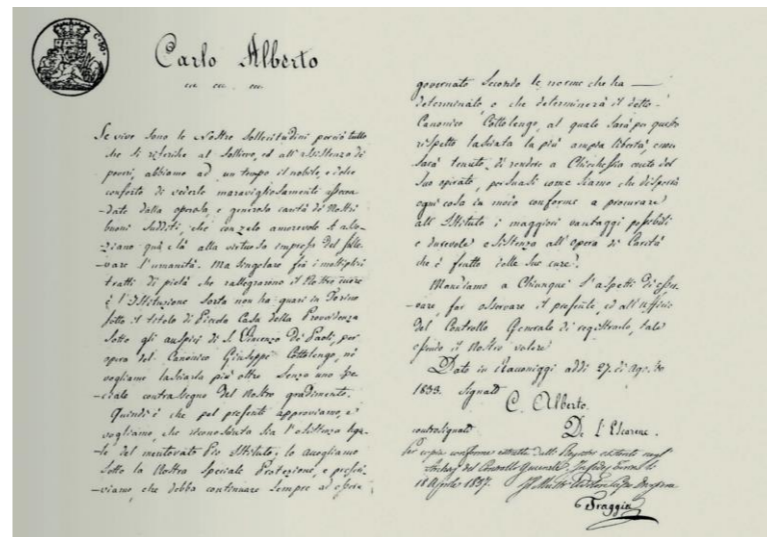 Carlo Alberto
ecc. ecc. ecc.
Se vive sono le Nostre Sollecitudini perciò tutto
che si riferisce al Sollievo, ed all'assistenza de
poveri, abbiamo ad un tempo il nobile, e dolce
conforto di vederle maravigliosamente assecon-
-date dalla operosa, e generosa carità de' Nostri
buoni Sudditi, che con zelo amorevole
quà e là alla virtuosa impresa del Solle-
-vare l'umanità. Ma singolare frà i moltiplici
tratti di pietà che rallegrarono il Nostro cuore
è l'Istituzione Sorta non ha guari in Torino
sotto il titolo di Piccola Casa della Provvidenza
Sotto gli auspizi di S. Vincenzo De' Paoli, per
opera del Canonico Giuseppe Cottolengo, nè
vogliamo lasciarla più oltre Senza uno Spe-
-ciale contrassegno del Nostro gradimento.
Quindi è che pel presente approviamo, e
vogliamo, che riconosciuta sia l'esistenza lega-
-le del mentovato Pio Istituto; lo accogliamo
Sotto la Nostra Speciale Protezione, e prescri-
-viamo, che debba continuare Sempre ad essere
governato Secondo le norme che ha
determinato o che determinerà il detto
Canonico Cottolengo, al quale Sarà per questo
rispetto lasciata la più ampia libertà, e non
Sarà tenuto, di rendere a Chicchessia conto del
Suo operato, persuasi come Siamo, che disporrà
ogni cosa in modo conforme a procurare
all'Istituto i maggiori vantaggi possibili
e durevole esistenza all'opera di Carità
che è frutto delle Sue cure.
Mandiamo a Chiunque s'aspetti di osser-
-vare, far osservare il presente, ed all'uffizio
del Controllo Generale di registrarlo, tale
essendo il Nostro volere
Dato in Racconiggi addì 27. di Agosto
1833. Signato
C. Alberto.
controsegnato De L'Escarene.
Per copia conforme estratta dalli Registri esistenti negli
Archivj del Controllo Generale. In fede, Torino li
18 Aprile 1837.
Fraggia